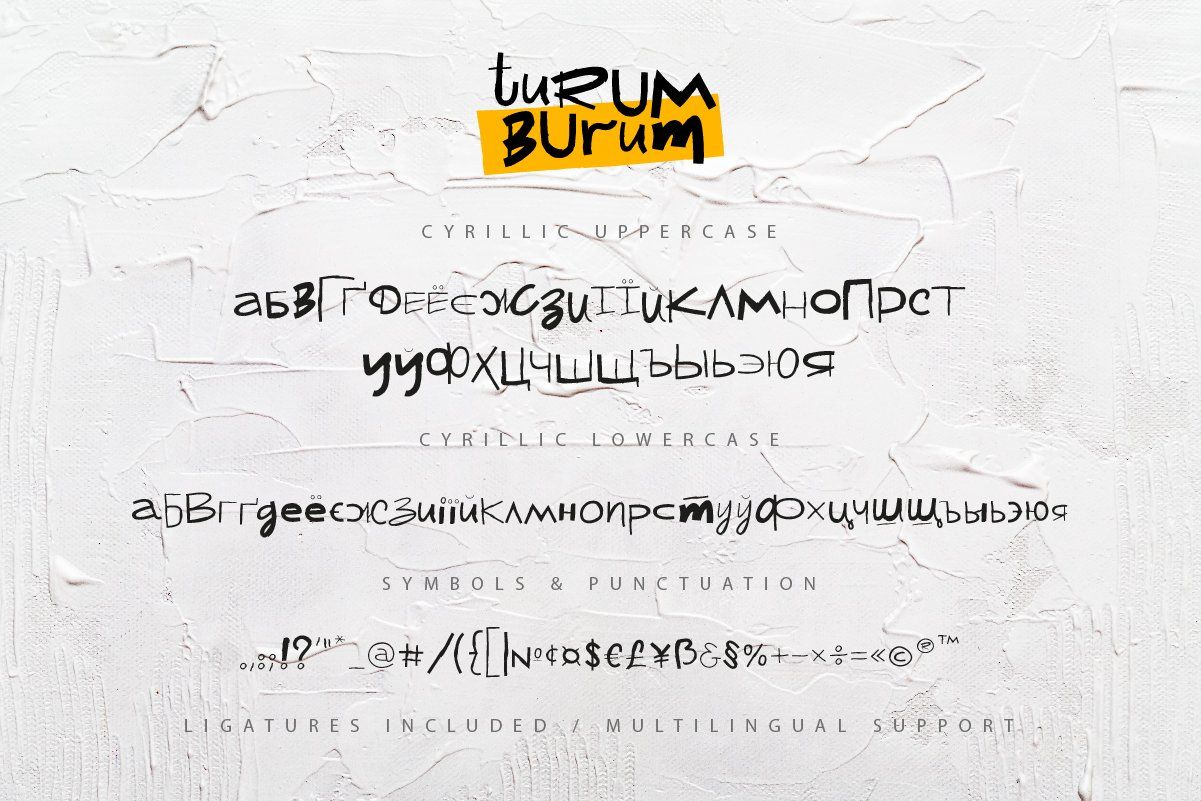 turum
Burum
CYRILLIC UPPERCASE
АБВГҐДЕЁЄЖЗИІЇЙКЛМНОПРСТ
УЎФХЦЧШЩЪЫЬЭЮЯ
CYRILLIC LOWERCASE
абвгґдеёєжзиіїйклмнопрстуўфхцчшщъыьэюя
SYMBOLS & PUNCTUATION
.,:;!?'"*_@#/({[|№¢¤$€£¥ß&§%+−×÷=«©®™
LIGATURES INCLUDED / MULTILINGUAL SUPPORT